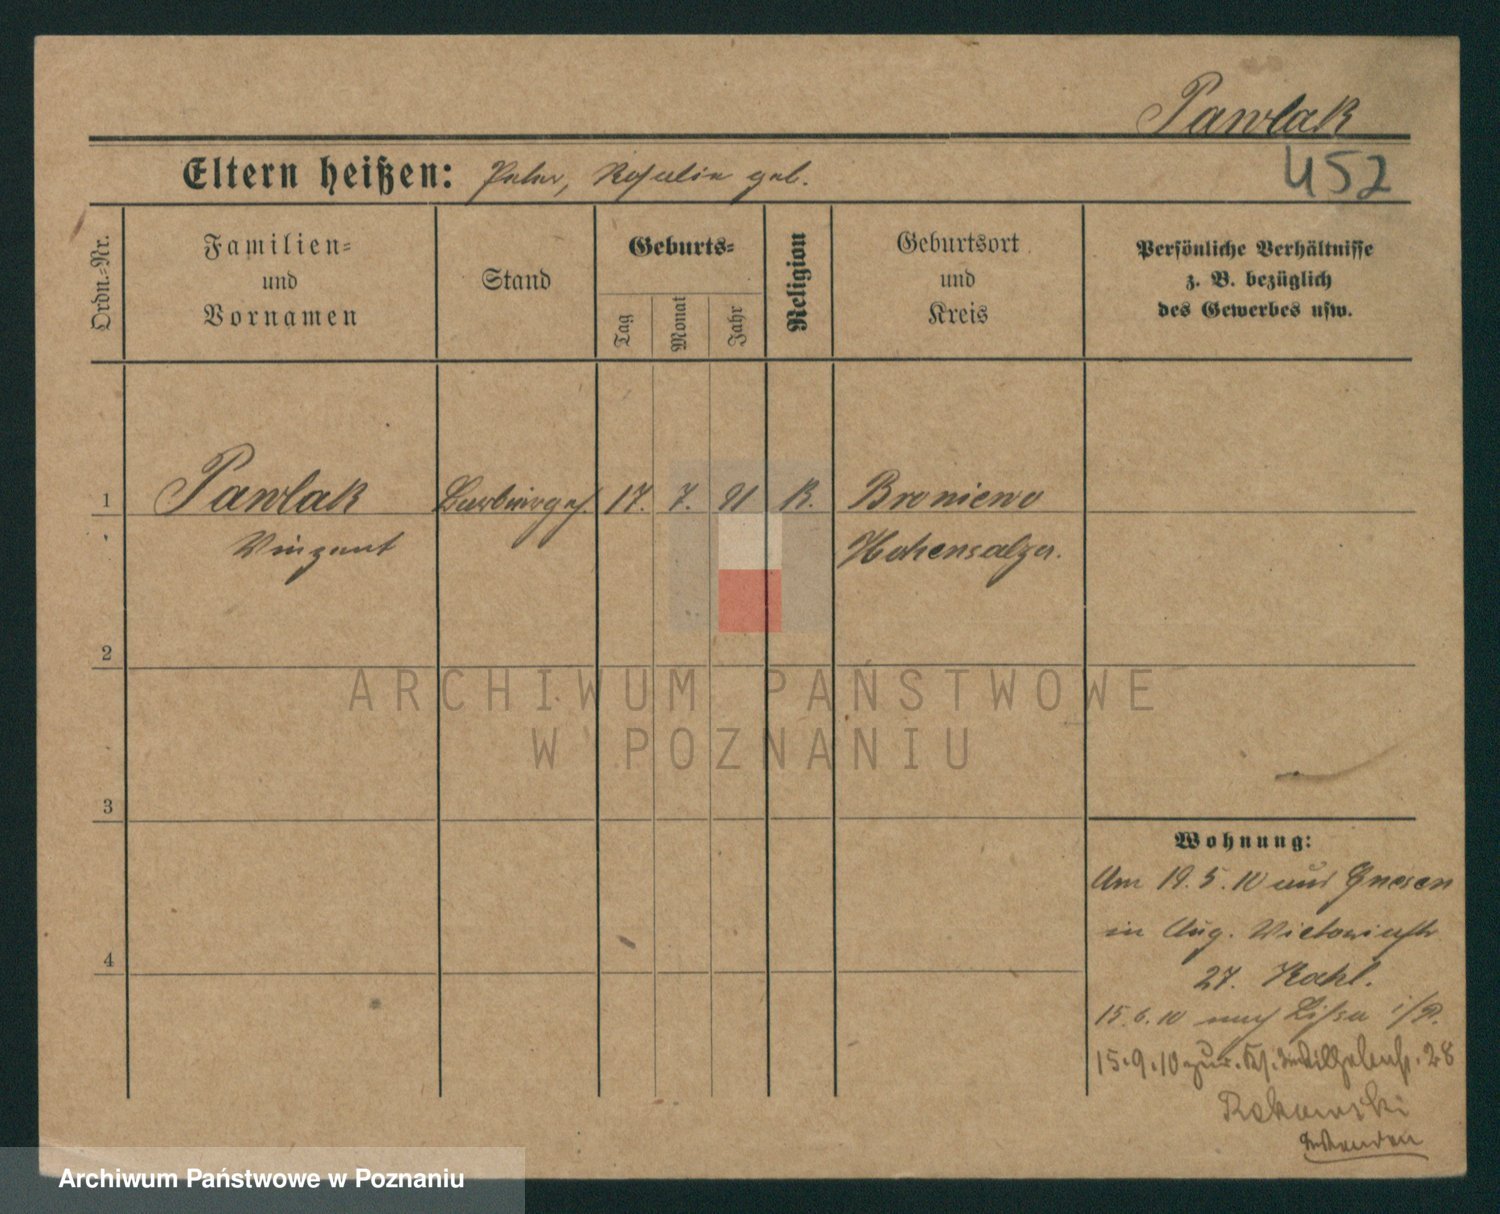 Pawlak
Eltern heißen: Peter, Rosalie geb.
452
Ordn.-Nr.
Familien-
und
Vornamen
Stand
Geburts-
Tag
Monat
Jahr
Religion
Geburtsort
und
Kreis
Persönliche Verhältnisse
z. B. bezüglich
des Gewerbes usw.
1 Pawlak Barbiergeh. 17. 7. 91 K. Broniewo
Vinzent Hohensalza.
2
ARCHIWUM PAŃSTWOWE
W POZNANIU
3
Wohnung:
Am 19. 5. 10 aus Gnesen
in Aug. Victoriastr
27. Kahl.
4
15. 6. 10 nach Lissa i/P.
15.9.10 zur. 28
Rakowski
wenden
Archiwum Państwowe w Poznaniu